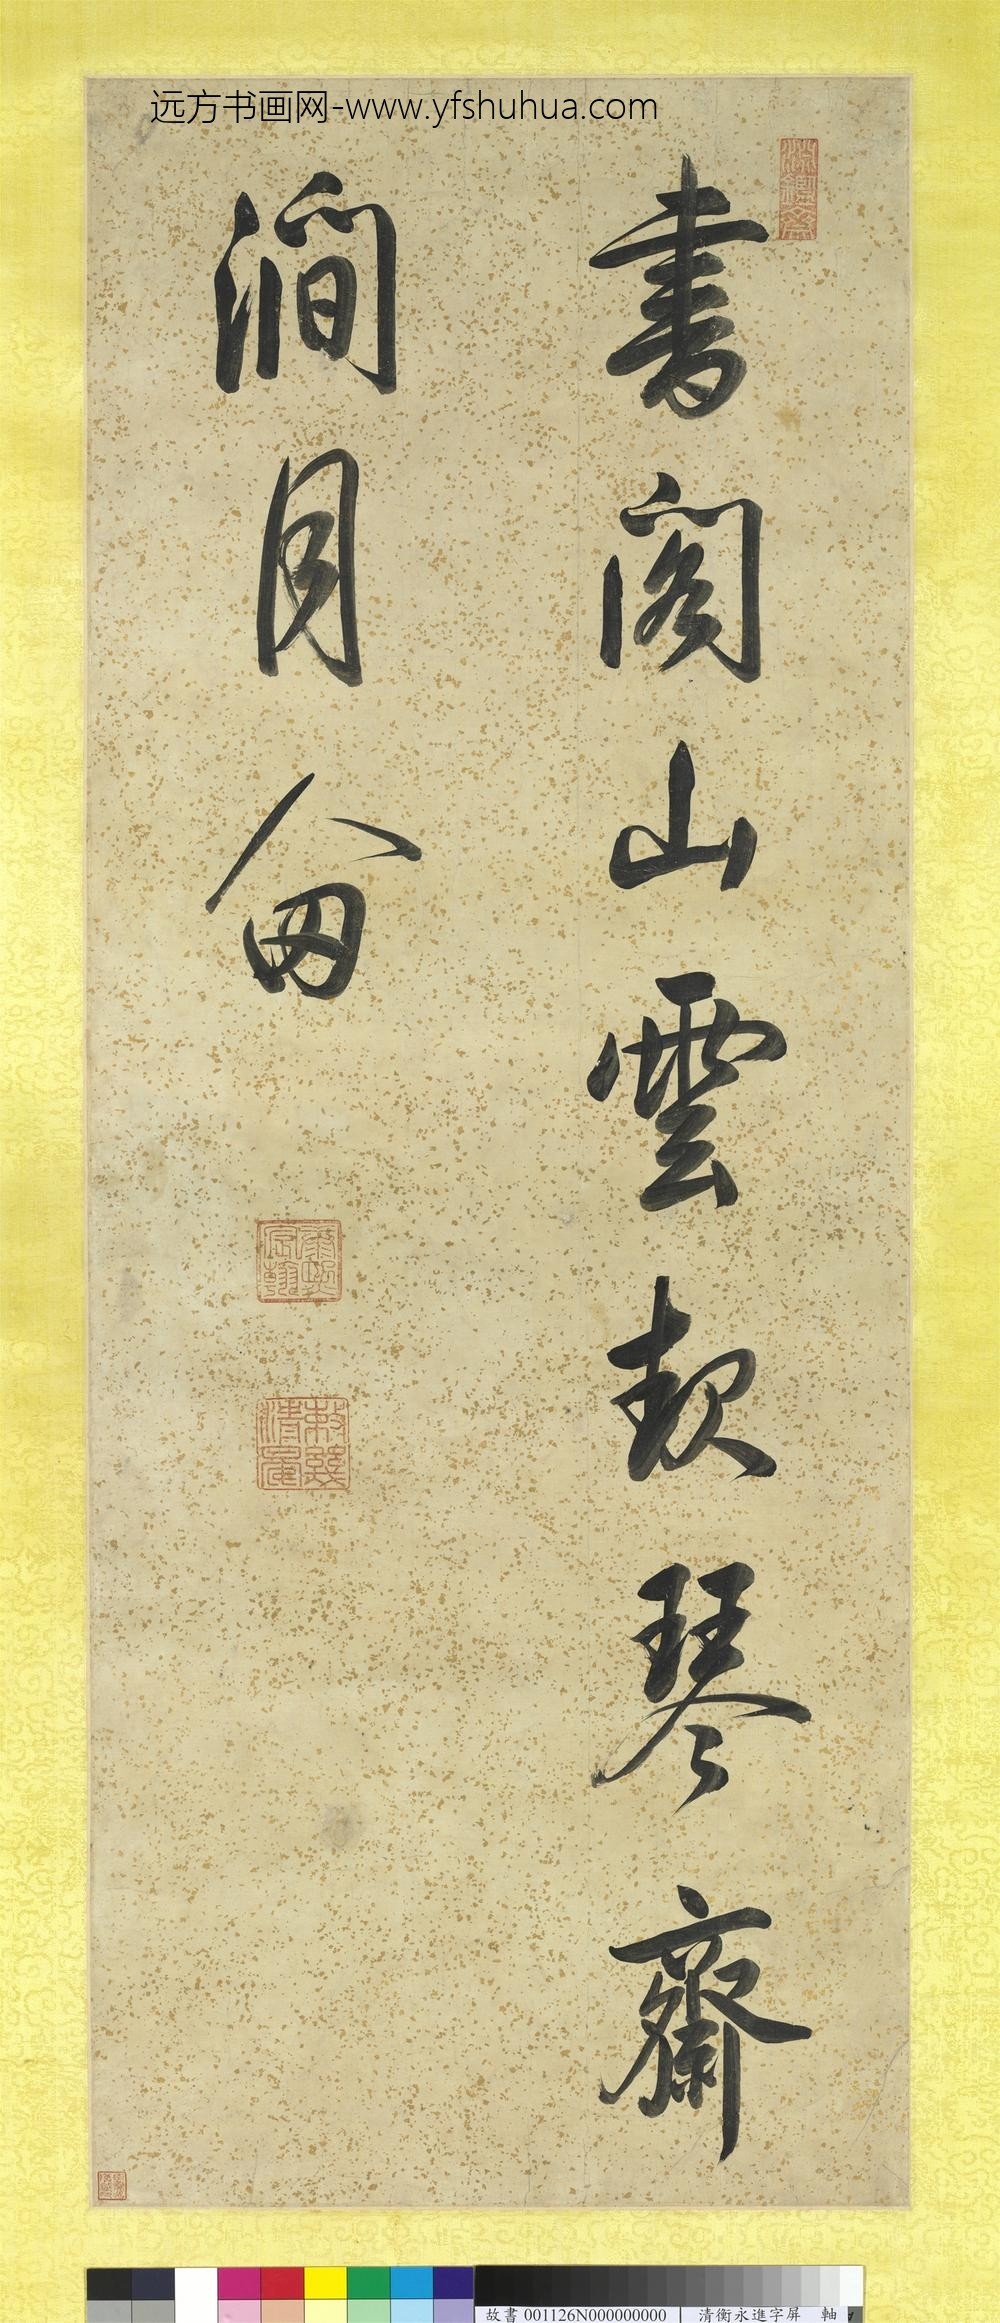 远方书画网-www.yfshuhua.com
淵鑒齋
書閣山雲起琴齋
澗月留
康熙宸翰
敕幾清晏
故書 001126N000000000 清衡永進字屏 軸